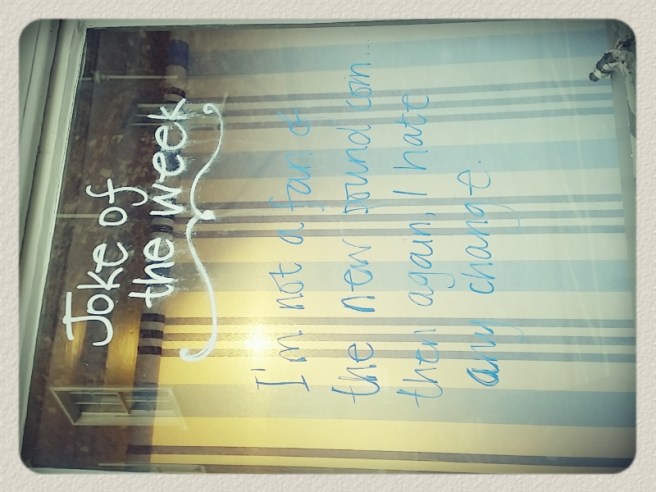 Joke of
the week
I'm not a fan of
the new pound coin...
then again, I hate
any change.